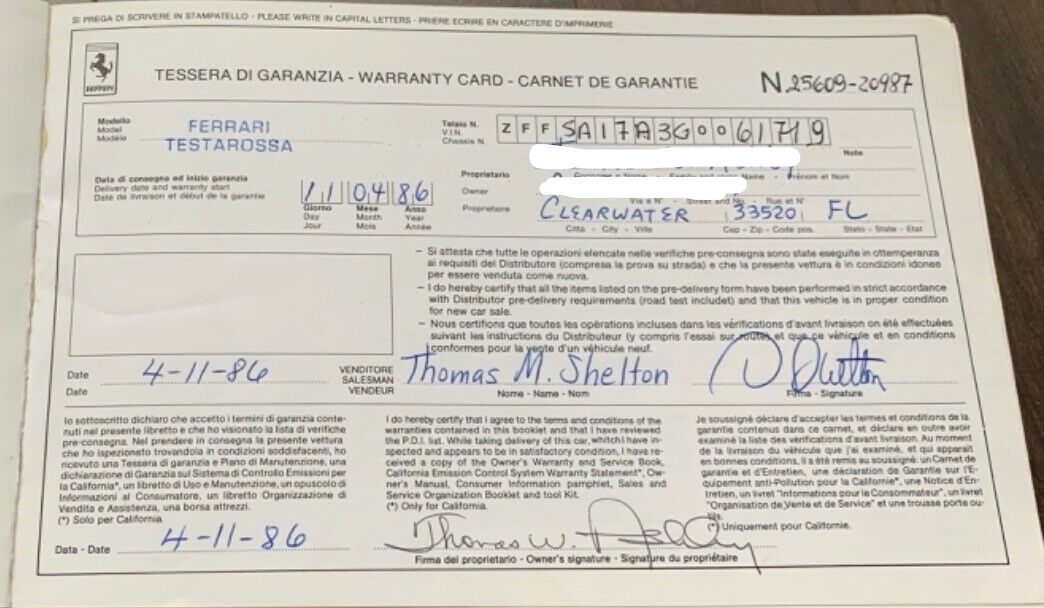 SI PREGA DI SCRIVERE IN STAMPATELLO - PLEASE WRITE IN CAPITAL LETTERS - PRIERE ECRIRE EN CARACTERE D'IMPRIMERIE
TESSERA DI GARANZIA - WARRANTY CARD - CARNET DE GARANTIE
N. 25609-20987
Modello
Model
Modèle
FERRARI
TESTAROSSA
Telaio N.
V.I.N.
Chassis N.
ZFFSA17A3G0061719
Note
Data di consegna ed inizio garanzia
Delivery date and warranty start
Date de livraison et début de la garantie
11 04 86
Giorno Mese Anno
Day Month Year
Jour Mois Année
Proprietario
Owner
Propriétaire
Name - Prénom et Nom
Via e N° - Street and No. - Rue et N°
CLEARWATER 33520 FL
Città - City - Ville Cap - Zip - Code pos. Stato - State - Etat
- Si attesta che tutte le operazioni elencate nelle verifiche pre-consegna sono state eseguite in ottemperanza
ai requisiti del Distributore (compresa la prova su strada) e che la presente vettura è in condizioni idonee
per essere venduta come nuova.
- I do hereby certify that all the items listed on the pre-delivery form have been performed in strict accordance
with Distributor pre-delivery requirements (road test includet) and that this vehicle is in proper condition
for new car sale.
- Nous certifions que toutes les opérations incluses dans les vérifications d'avant livraison on été effectuées
suivant les instructions du Distributeur (y compris l'essai sur routes et que ce véhicule et en conditions
conformes pour la vente d'un véhicule neuf.
Date
Date
4-11-86
VENDITORE
SALESMAN
VENDEUR
Thomas M. Shelton
Nome - Name - Nom
Firma - Signature
Io sottoscritto dichiaro che accetto i termini di garanzia conte-
nuti nel presente libretto e che ho visionato la lista di verifiche
pre-consegna. Nel prendere in consegna la presente vettura
che ho ispezionato trovandola in condizioni soddisfacenti, ho
ricevuto una Tessera di garanzia e Piano di Manutenzione, una
dichiarazione di Garanzia sul Sistema di Controllo Emissioni per
la California*, un libretto di Uso e Manutenzione, un opuscolo di
Informazioni al Consumatore, un libretto Organizzazione di
Vendita e Assistenza, una borsa attrezzi.
(*) Solo per California.
I do hereby certify that I agree to the terms and conditions of the
warranties contained in this booklet and that I have reviewed
the P.D.I. list. While taking delivery of this car, whitch I have in-
spected and appears to be in satisfactory condition, I have re-
ceived a copy of the Owner's Warranty and Service Book,
California Emission Control System Warranty Statement*, Ow-
ner's Manual, Consumer Information pamphlet, Sales and
Service Organization Booklet and tool Kit.
(*) Only for California.
Je soussigné déclare d'accepter les termes et conditions de la
garantie contenus dans ce carnet, et déclare en outre avoir
examiné la liste des vérifications d'avant livraison. Au moment
de la livraison du véhicule que j'ai examiné, et qui apparait
en bonnes conditions, il a été remis au soussigné: un Carnet de
garantie et d'Entretien, une déclaration de Garantie sur l'E-
quipement anti-Pollution pour la California*, une Notice d'En-
tretien, un livret "Informations pour le Consommateur", un livret
"Organisation de Vente et de Service" et une trousse porte ou-
tils.
(*) Uniquement pour Californie.
Data - Date
4-11-86
Thomas W.
Firma del proprietario - Owner's signature - Signature du propriétaire